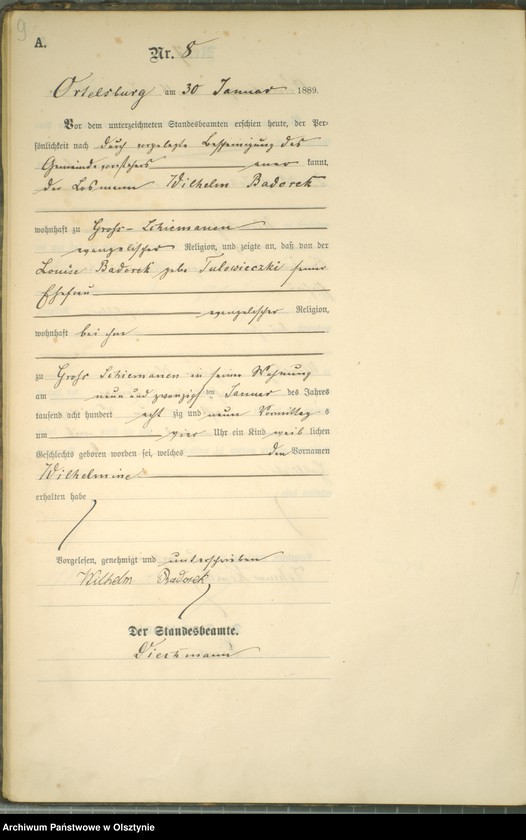 9
A.
Nr. 8
Ortelsburg am 30 Januar 1889.
Vor dem unterzeichneten Standesbeamten erschien heute, der Per-
sönlichkeit nach durch vorgelegte Bescheinigung des
Gemeindevorstehers aner kannt,
der Losmann Wilhelm Badorek
wohnhaft zu Groß-Schiemanen
evangelischer Religion, und zeigte an, daß von der
Louise Badorek gebe Tulowieczki seiner
Ehefrau
evangelischer Religion,
wohnhaft bei ihm
zu Groß Schiemanen in seiner Wohnung
am neun und zwanzigsten Januar des Jahres
tausend acht hundert acht zig und neun Vormittag s
um vier Uhr ein Kind weib lichen
Geschlechts geboren worden sei, welches den Vornamen
Wilhelmine
erhalten habe
Vorgelesen, genehmigt und unterschrieben
Wilhelm Badorek
Der Standesbeamte.
Archiwum Państwowe w Olsztynie